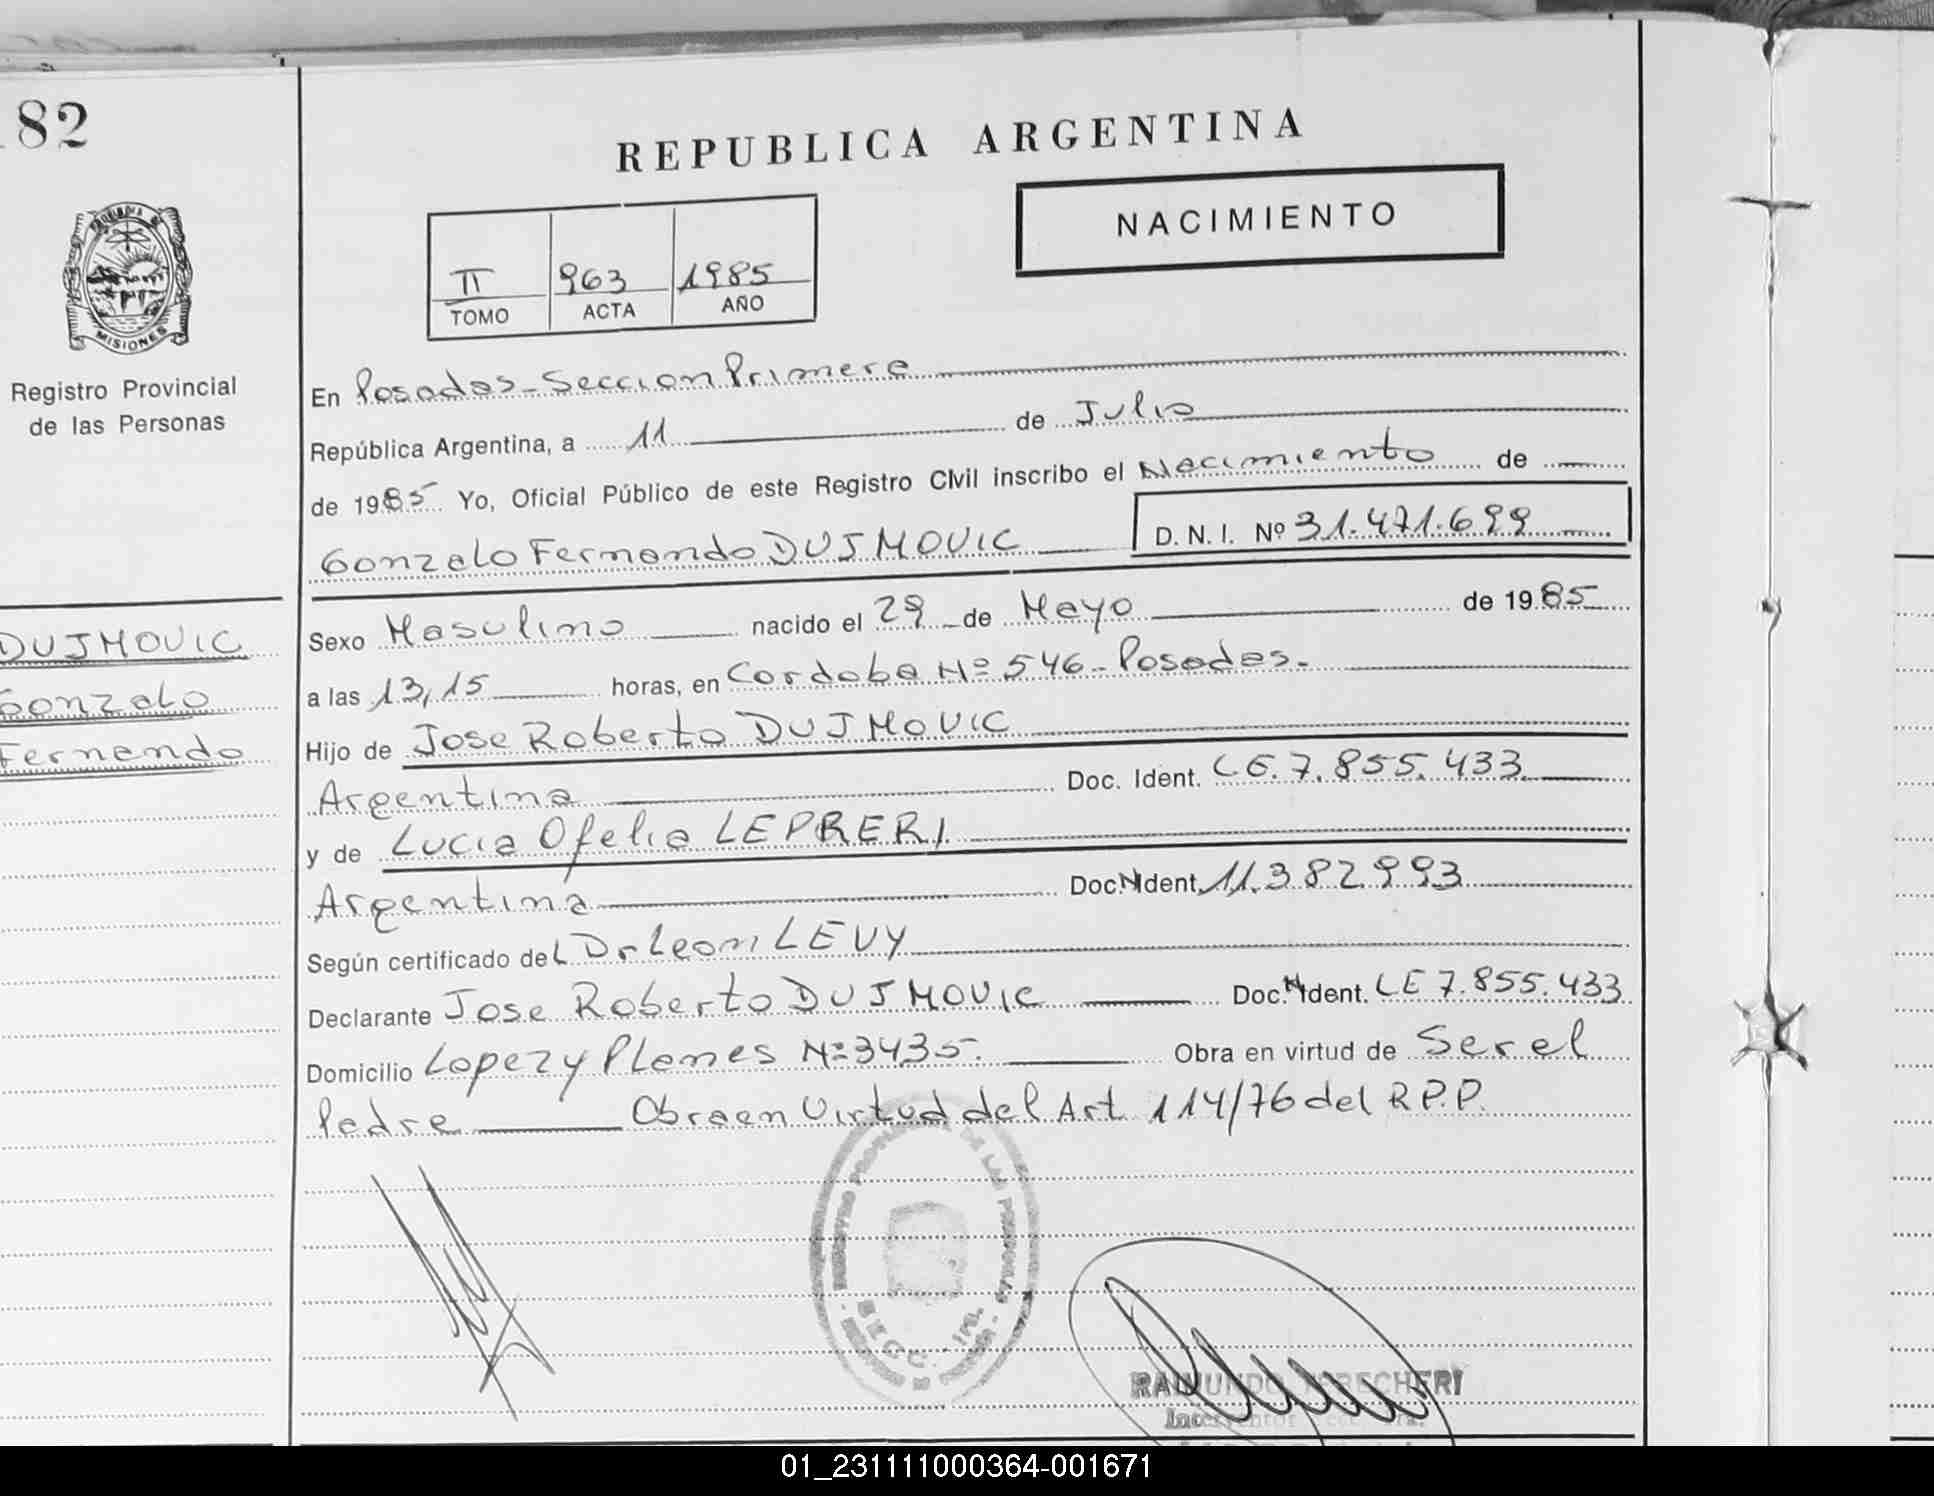 82
REPUBLICA ARGENTINA
NACIMIENTO
II 963 1985
TOMO ACTA AÑO
MISIONES
Registro Provincial
de las Personas
En Posadas-Seccion Primera
República Argentina, a 11 de Julio
de 1985 Yo, Oficial Público de este Registro Civil inscribo el Nacimiento de
Gonzalo Fernando DUJMOVIC D. N. I. Nº 31.471.699
Sexo Masulino nacido el 29 de Mayo de 1985
a las 13,15 horas, en Cordoba Nº 546-Posadas.
Hijo de Jose Roberto DUJMOVIC
Argentina Doc. Ident. LE. 7.855.433
y de Lucia Ofelia LEPRERI
Argentina Doc. Ident. 11.382.993
Según certificado del Dr Leon LEVY
Declarante Jose Roberto DUJMOVIC Doc. Ident. LE 7.855.433
Domicilio Lopez y Planes Nº 3435. Obra en virtud de Ser el
Padre Obra en Virtud del Art 114/76 del R.P.P.
DUJMOVIC
Gonzalo
Fernando
SECC. 1ra.
RAIMUNDO
Interventor Secc 1ra.
01_231111000364-001671